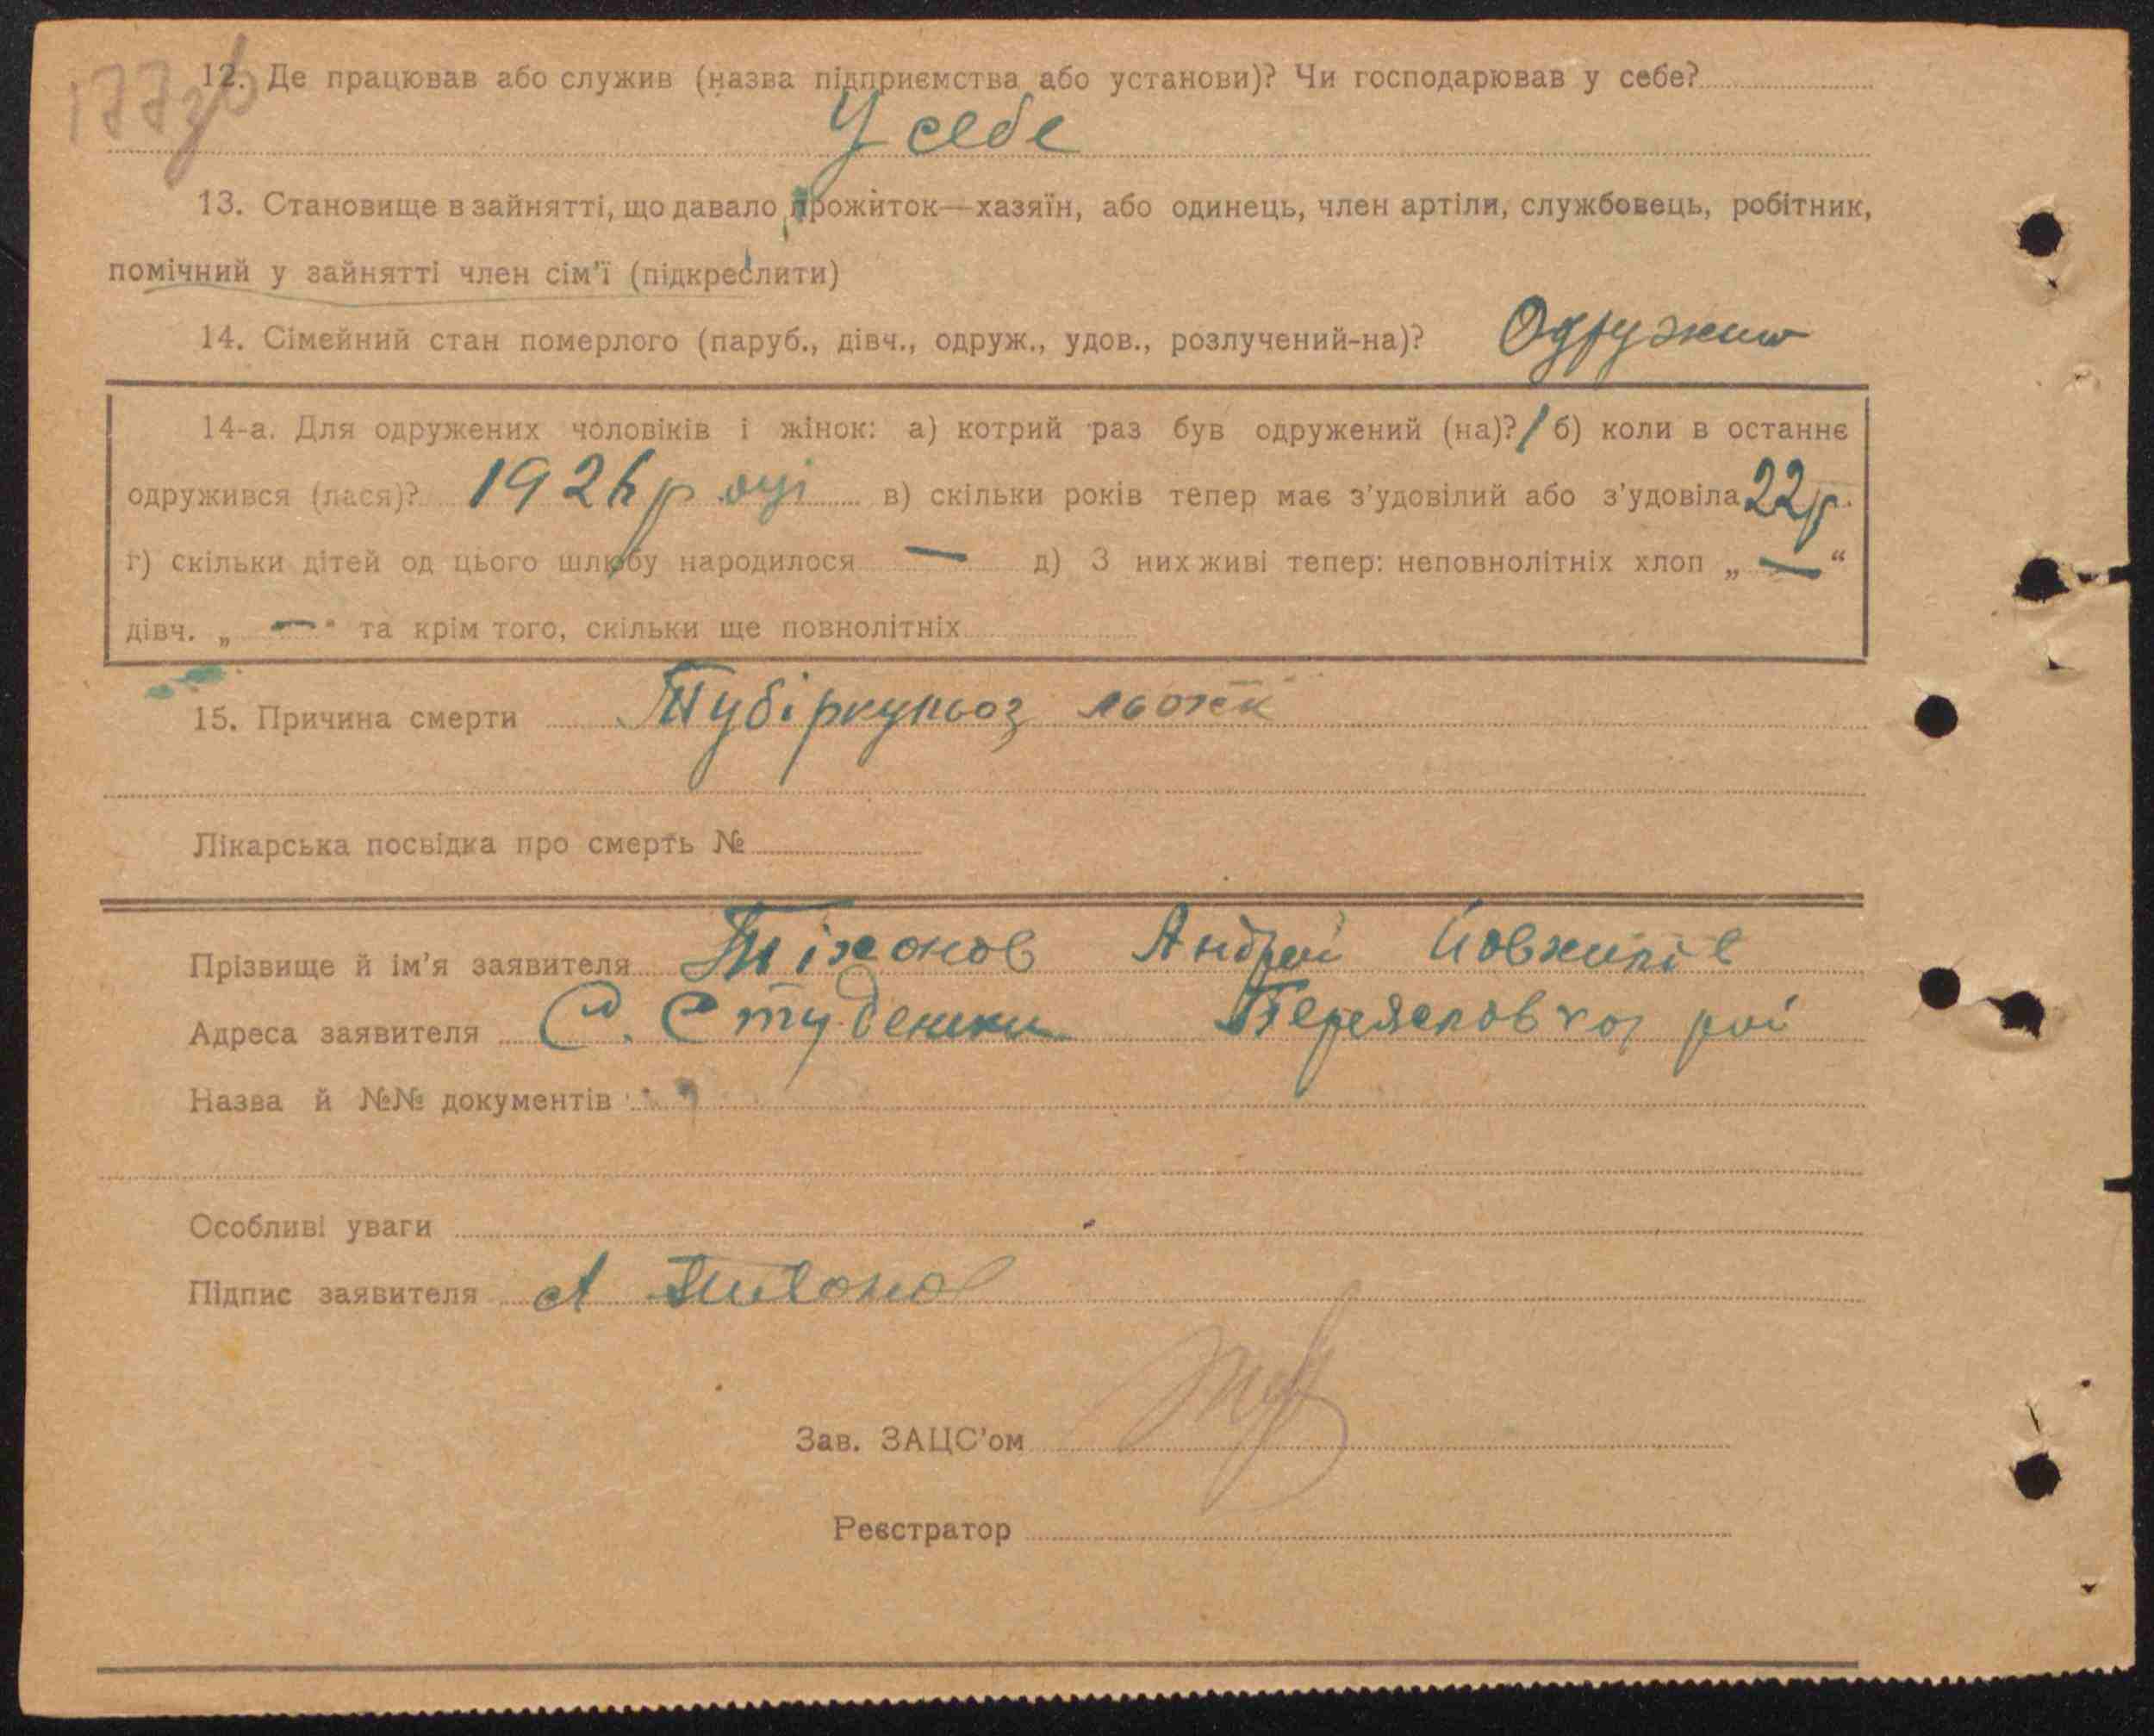 177зв
12. Де працював або служив (назва підприємства або установи)? Чи господарював у себе?
У себе
13. Становище в зайнятті, що давало прожиток—хазяїн, або одинець, член артіли, службовець, робітник,
помічний у зайнятті член сім'ї (підкреслити)
14. Сімейний стан померлого (паруб., дівч., одруж., удов., розлучений-на)?
14-а. Для одружених чоловіків і жінок: а) котрий раз був одружений (на)? 1 б) коли в останнє
одружився (лася)? в) скільки років тепер має з'удовілий або з'удовіла 22 р.
г) скільки дітей од цього шлюбу народилося — д) З них живі тепер: неповнолітніх хлоп „ — “
дівч. „ — “ та крім того, скільки ще повнолітніх
15. Причина смерти Тубіркульоз
Лікарська посвідка про смерть №
Прізвище й ім'я заявителя Тіхонов Андрей
Адреса заявителя С. Студеники
Назва й №№ документів
Особливі уваги
Підпис заявителя А Тихонов
Зав. ЗАЦС'ом
Реєстратор